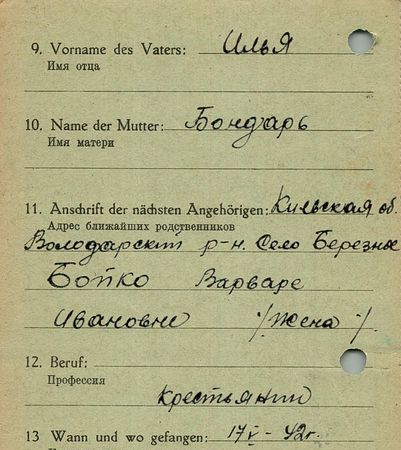 9. Vorname des Vaters: Илья
Имя отца
10. Name der Mutter: Бондарь
Имя матери
11. Anschrift der nächsten Angehörigen: Кильская об.
Адрес ближайших родственников
Володарский р-н. Село Березное
Бойко Варваре
Ивановне /Жена/.
12. Beruf:
Профессия
крестьянин
13 Wann und wo gefangen: 17 V - 42г.